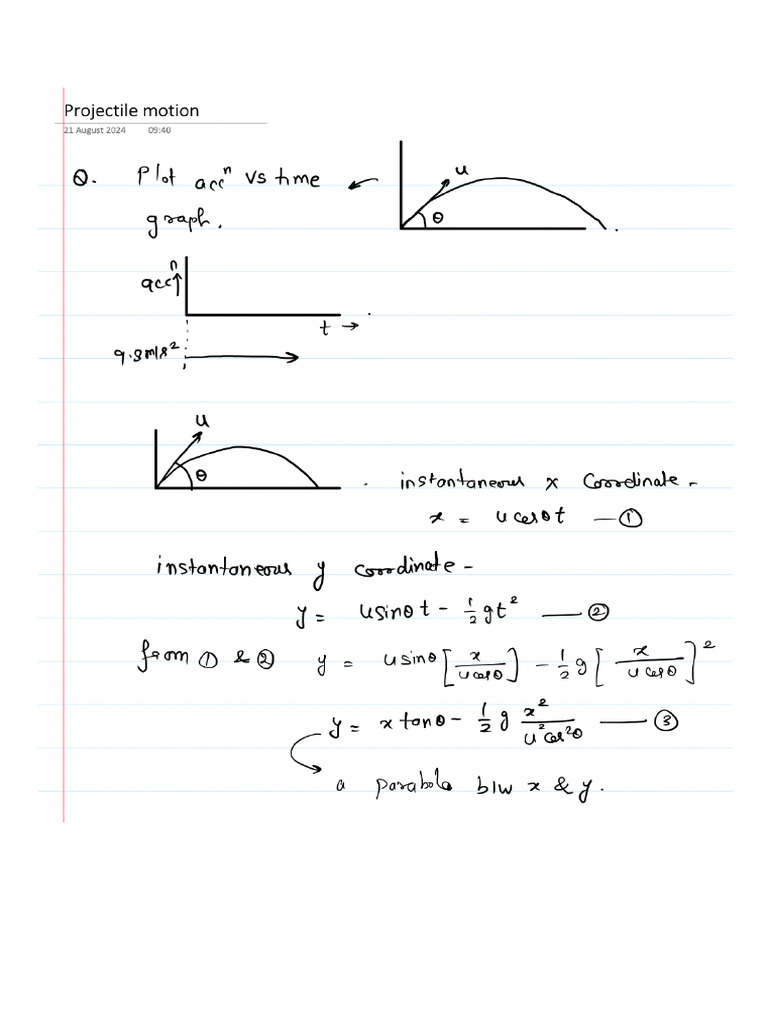 Projectile motion
21 August 2024 09:40
Q. Plot accⁿ vs time
graph.
u
θ
accⁿ
t →
9.8m/s²
u
θ
instantaneous x coordinate -
x = u cosθt — ①
instantaneous y coordinate -
y = usinθt - ½gt² — ②
from ① & ② y = usinθ[x/ucosθ] - ½g[x/ucosθ]²
y = x tanθ - ½ g x²/u²cos²θ — ③
a parabola b/w x & y.